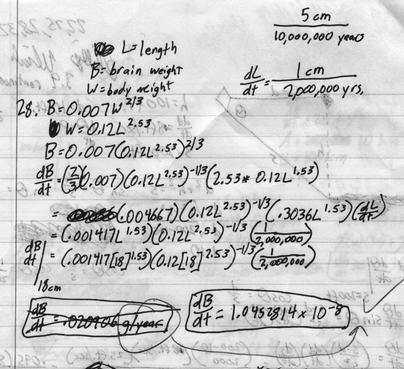 5 cm
10,000,000 years
L=length
B=brain weight
W=body weight
dL/dt = 1cm / 2,000,000 yrs.
28. B=0.007W^2/3
W=0.12L^2.53
B=0.007(0.12L^2.53)^2/3
dB/dt=(2/3)(0.007)(0.12L^2.53)^-1/3(2.53*0.12L^1.53)
=(.004667)(0.12L^2.53)^-1/3(.3036L^1.53)(dL/dt)
=(.001417L^1.53)(0.12L^2.53)^-1/3(1/2,000,000)
dB/dt|18cm=(.001417[18]^1.53)(0.12[18]^2.53)^-1/3(1/2,000,000)
dB/dt = .020906 g/year
dB/dt = 1.0452814 x 10^-8